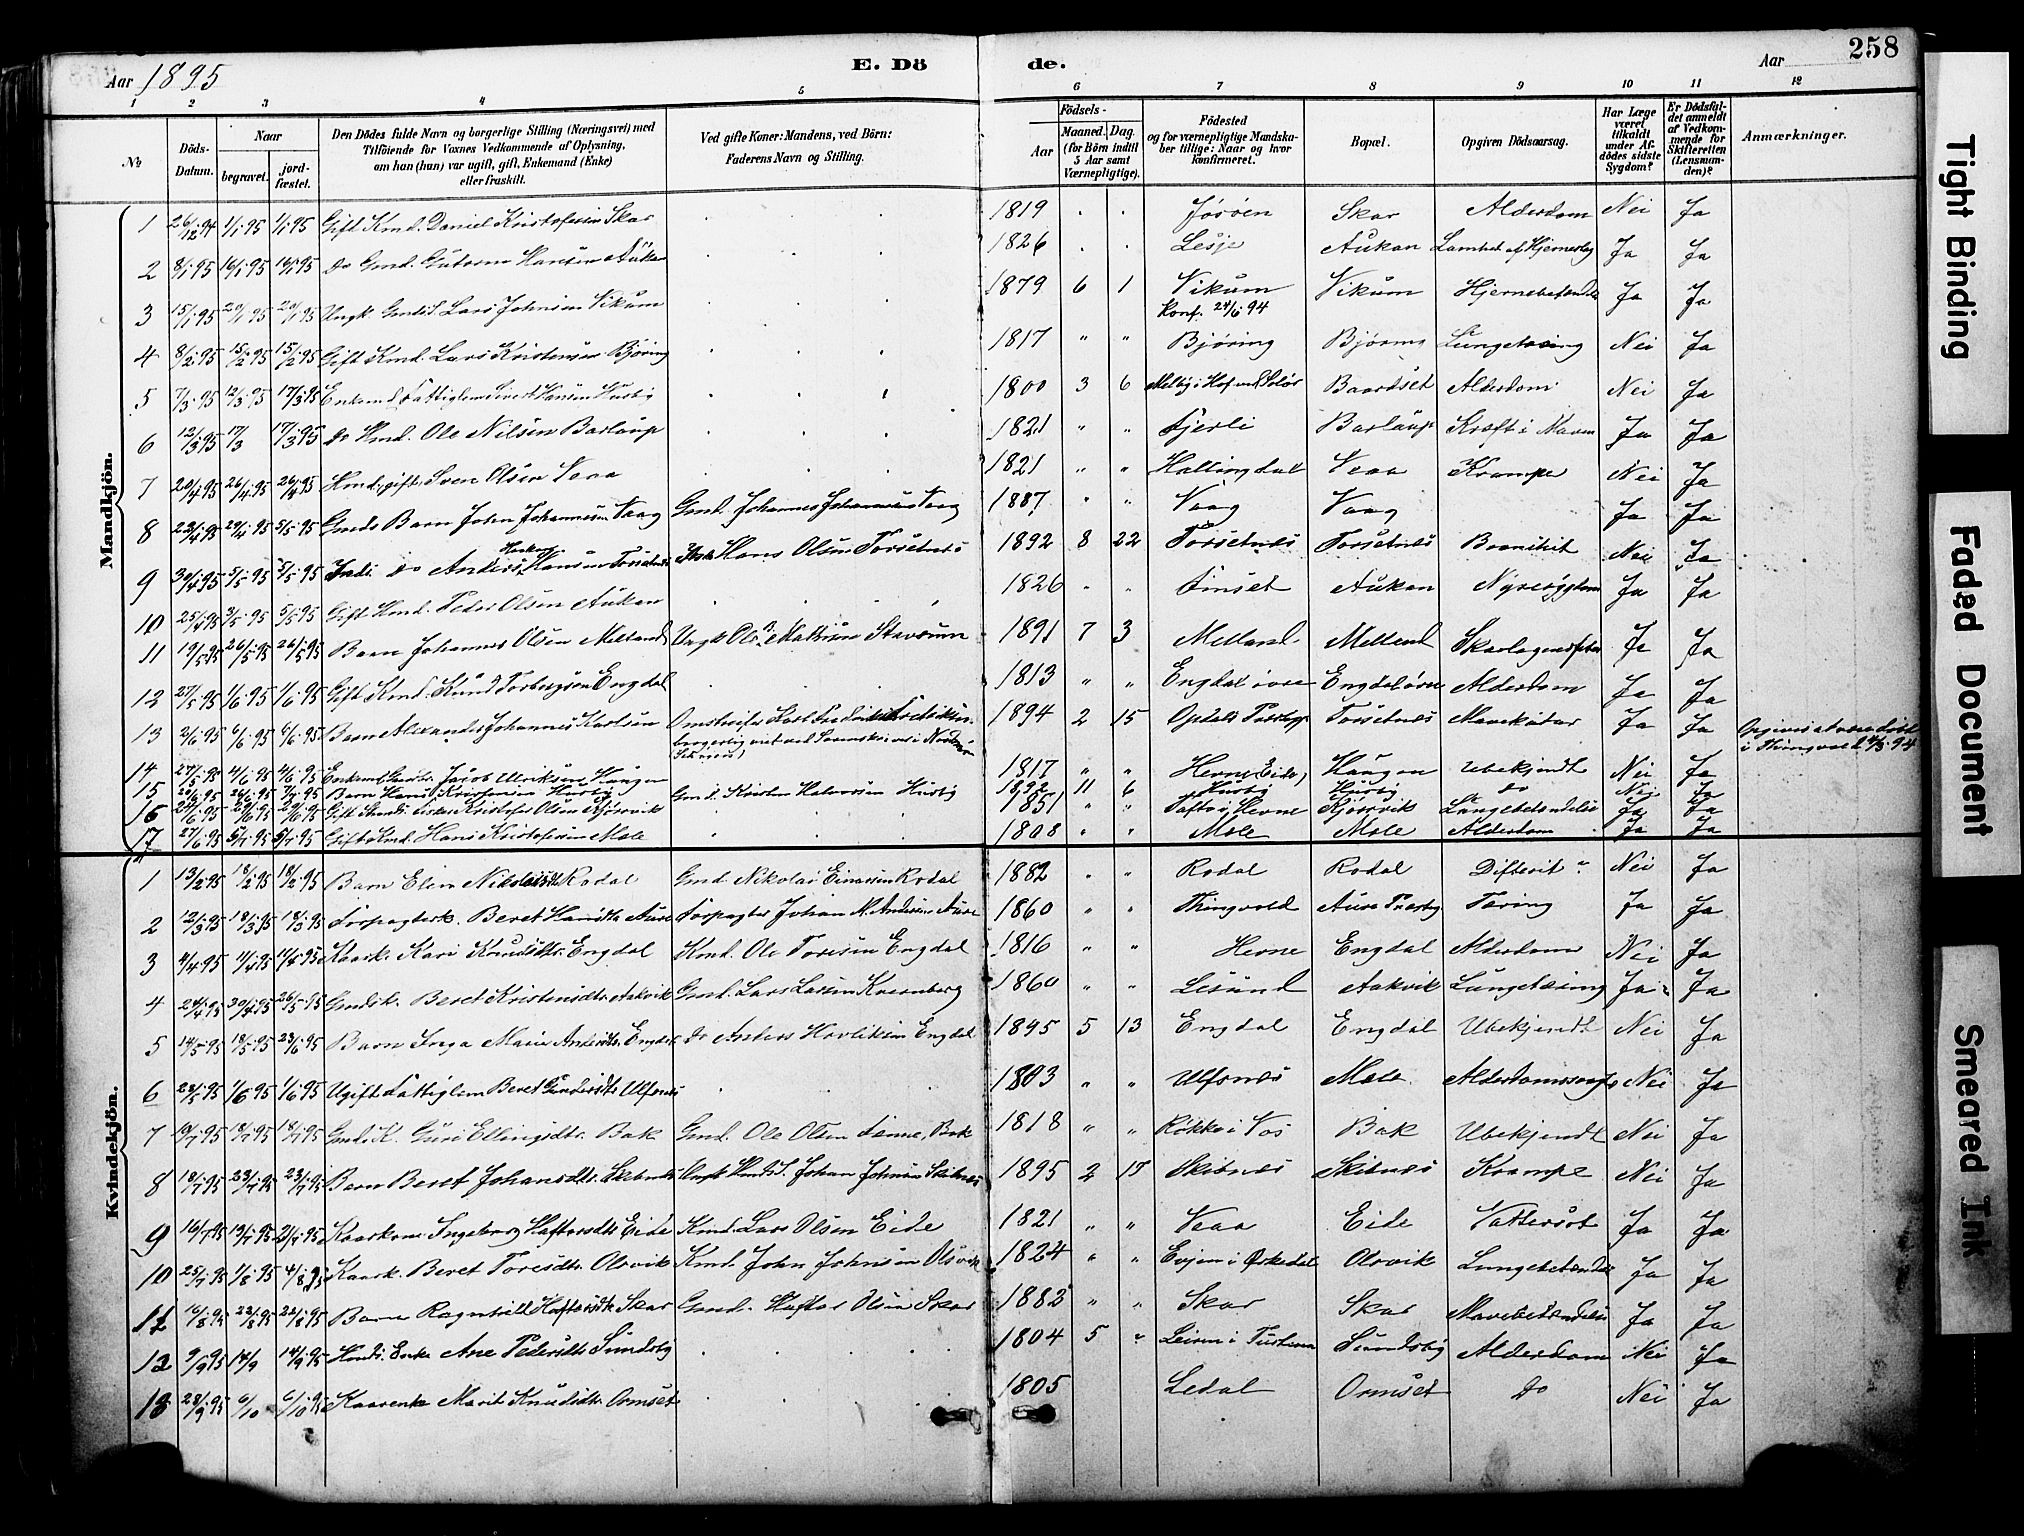 Aar 1895
E. Dö
de.
Aar
258
1 2 3 4 5 6 7 8 9 10 11 12
No
Döds-Datum.
Naar
begravet.
jord-fæstet.
Den Dödes fulde Navn og borgerlige Stilling (Næringsvei) med
Tilföiende for Voxnes Vedkommende af Oplysning,
om han (hun) var ugift, gift, Enkemand (Enke)
eller fraskilt.
Ved gifte Koner: Mandens, ved Börn:
Faderens Navn og Stilling.
Födsels-
Aar
Maaned. Dag.
(for Börn indtil
5 Aar samt
Værnepligtige).
Födested
og for værnepligtige Mandska-
ber tillige: Naar og hvor
konfirmeret.
Bopæl.
Opgiven Dödsaarsag.
Har Læge
været
tilkaldt
under Af-
dödes sidste
Sygdom?
Er Dödsfal-
det anmeldt
af Vedkom-
mende for
Skifteretten
(Lensman-
den)?
Anmærkninger.
Mandkjön.
1 26/12 94 1/1 95 1/1 95 Gift Kmd. Daniel Kristofersen Skar 1819 Skar Alderdom Nei Ja
2 8/1 95 16/1 95 16/1 95 do Gmd. Guttorm Hansen Aukan 1826 Lesje Aukan Lamhet af Hjerneslag Ja Ja
3 15/1 95 20/1 95 20/1 95 Ungk. Gmds S. Lars Johnsen Vikum 1879 6 1 Vikum Konf. 24/6 94 Vikum Hjernebetændelse Ja Ja
4 8/2 95 15/2 95 15/2 95 Gift Kmd. Lars Kristensen Björing 1817 " " Bjøring Bjøring Lungetæring Nei Ja
5 7/3 95 12/3 95 17/3 95 Enkemd. Fattiglem Sivert Hansen Husby 1800 3 6 Baardset Alderdom Nei Ja
6 12/3 95 17/3 17/3 95 do Hmd. Ole Nilsen Barlaup 1821 " " Fjerli Barlaup Kræft i Maven Ja Ja
7 20/4 95 26/4 95 26/4 95 Hmd. gift Sven Olsen Vaaa 1821 " " Hallingdal Veaa Krampe Nei Ja
8 22/4 95 29/4 95 5/5 95 Gmds Barn John Johannesen Vaag Gmd. Johannes Johannesen Vaag 1887 " " Vaag Vaag Ja Ja
9 30/4 95 5/5 95 5/5 95 Inds. do Anders Haakon Hansen Torsetnes Inds. Hans Olsen Torsetnes 1892 8 22 Torsetnes Torsetnes Bronkit Nei Ja
10 25/4 95 3/5 95 5/5 95 Gift Hmd. Peder Olsen Aukan 1826 " " Finset Aukan Nyresygdom Ja Ja
11 19/5 95 26/5 95 26/5 95 Barn Johannes Olsen Melland Ungk. Ole Mathisen Stavsum 1891 7 3 Melland Melland Skarlagensfeber Ja Ja
12 27/5 95 1/6 95 1/6 95 Gift Kmd. Knud Torbergsen Engdal 1813 " " Engdal övre Engdal övre Alderdom Ja Ja
13 2/6 95 6/6 95 6/6 95 Barn Alexander Johannes Karlsen Omstreifer Karl Fredrik Fredriksen 1894 2 15 Opdals Præstegj. Torsetnes Mavekatar Ja Ja Opgives at være døbt
i Thingvold 4/3 94
14 27/5 95 4/6 95 4/6 95 Enkemd. Jacob Ulriksen Haugen 1817 " " Hevne (Eide) Haugen Ubekjendt Nei Ja
15 20/6 95 26/6 95 7/7 95 Barn Hans Kristensen Husby Gmd. Kristen Halvorsen Husby 1892 11 6 Husby Husby do Nei Ja
16 24/6 95 29/6 95 29/6 95 Gift Fisker Kristofer Olsen Kjörsvik 1851 " " Hevne Kjörsvik Lungebetændelse Ja Ja
17 27/6 95 5/7 95 5/7 95 Gift Kmd. Hans Kristofersen Mole 1808 " " Mole Mole Alderdom Ja Ja
Kvindekjön.
1 13/2 95 18/2 95 18/2 95 Barn Elen Nikolaisdtr. Rodal Gmd. Nikolai Einarsen Rodal 1882 " " Rodal Rodal Difterit Nei Ja
2 12/3 95 18/3 95 18/3 95 Forpagterk. Beret Hansdtr. Aure Forpagter Johan M. Andersen Aure 1860 " " Thingvold Aure Præstg. Tæring Ja Ja
3 4/4 95 11/4 95 17/4 95 Kaark. Kari Knudsdtr. Engdal Kmd. Ole Toresen Engdal 1816 " " Hevne Engdal Alderdom Nei Ja
4 24/4 95 30/4 95 26/5 95 Gmdsk. Beret Kristensdtr. Aakvik Gmd. Lars Larsen Kvernberg 1860 " " Lesund Aakvik Lungetæring Ja Ja
5 14/5 95 18/5 95 23/6 95 Barn Inga Marie Andersdtr. Engdal do Anders Hovliksen Engdal 1895 5 13 Engdal Engdal Ubekjendt Nei Ja
6 28/5 95 1/6 95 1/6 95 Ugift Fattiglem Beret Gundersdtr. Ulfsnes 1803 " " Ulfsnes Mole Nei Ja
7 10/7 95 18/7 95 18/7 95 Gmds K. Guri Ellingsdtr. Bak Gmd. Ole Olsen Bak 1818 " " Bak Ubekjendt Nei Ja
8 18/7 95 23/7 95 23/7 95 Barn Beret Johansdtr. Skibnes Ungk. Hmds S. Johan Johnsen Skibnes 1895 2 17 Skibnes Skibnes Krampe Nei Ja
9 16/7 95 13/7 95 21/7 95 Kaarkone Ingeborg Haftorsdtr. Eide Kmd. Lars Olsen Eide 1821 " " Veaa Eide Vattersot Ja Ja
10 25/7 95 1/8 95 4/8 95 Kaark. Beret Toresdtr. Olsvik Kmd. John Johnsen Olsvik 1824 " " Evjen i Orkedal Olsvik Lungebetændelse Ja Ja
11 16/8 95 22/8 95 22/8 95 Barn Ragnhild Haftorsdtr. Skar Gmd. Haftor Olsen Skar 1882 " " Skar Skar Mavebetændelse Ja Ja
12 9/9 95 14/9 14/9 95 Hmds. Enke Ane Pedersdtr. Sundsby 1804 5 " Leiren i Tustern Sundsby Alderdom Nei Ja
13 28/9 95 6/10 6/10 95 Kaarenke Marit Knudsdtr. Ormset 1805 Ledal Ormset do Nei Ja
Tight Binding
Faded Document
Smeared Ink